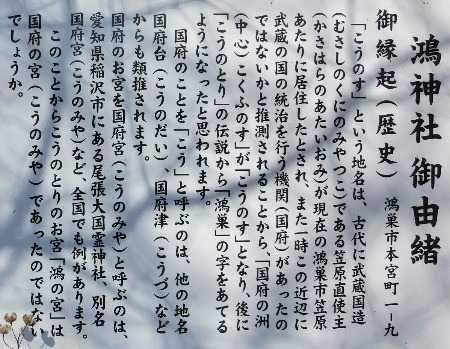 鴻神社御由緒
御縁起(歴史)　鴻巣市本宮町一ー九
「こうのす」という地名は、古代に武蔵国造
(むさしのくにのみやつこ)である笠原直使主
(かさはらのあたいおみ)が現在の鴻巣市笠原
あたりに居住したとされ、また一時この近辺に
武蔵の国の統治を行う機関(国府)があったの
ではないかと推測されることから、「国府の洲
(中心)こくふのす」が「こうのす」となり、後に
「こうのとり」の伝説から「鴻巣」の字をあてる
ようになったと思われます。
国府のことを「こう」と呼ぶのは、他の地名
国府台(こうのだい)、国府津(こうづ)など
からも類推されます。
国府のお宮を国府宮(こうのみや)と呼ぶのは、
愛知県稲沢市にある尾張大国霊神社、別名
国府宮(こうのみや)など、全国でも例があります。
このことからこうのとりのお宮「鴻の宮」は
国府の宮(こうのみや)であったのではない
でしょうか。